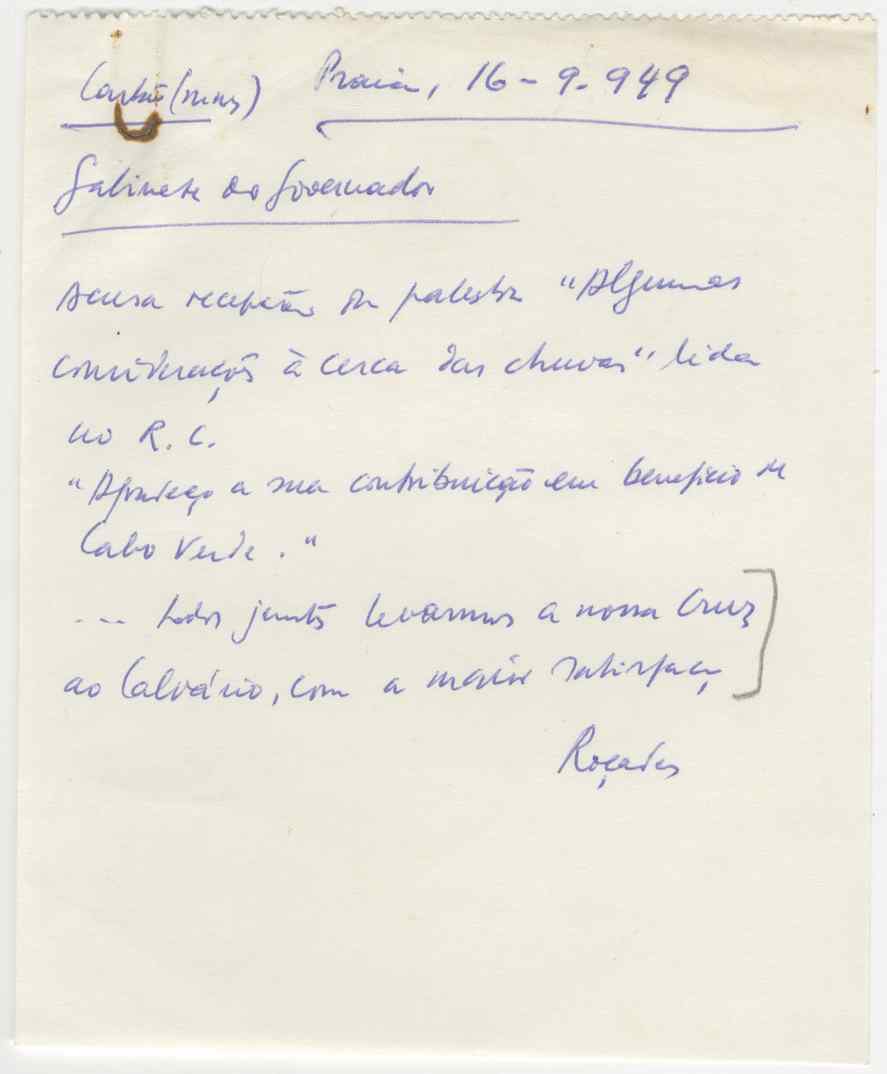 Cartão (mns) Praia, 16-9-949
Gabinete do Governador
Acusa recepção da palestra "Algumas
considerações à cerca das chuvas" lida
no R.C.
"Agradeço a sua contribuição em beneficio de
Cabo Verde."
... todos juntos levarmos a nossa Cruz
ao Calvário, com a maior satisfação
Roçadas